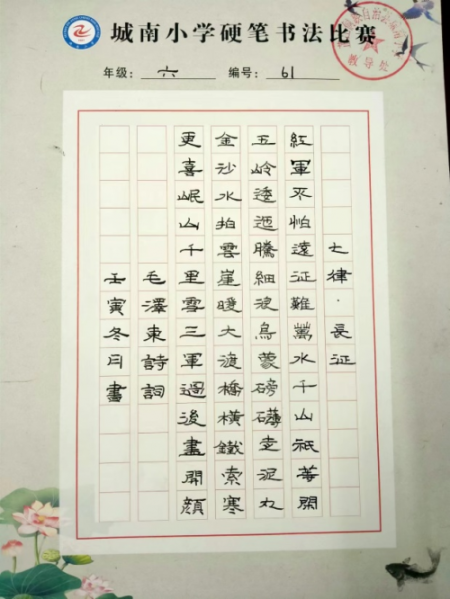 城南小学硬笔书法比赛
年级：六 编号：61
教导处
七律·長征
紅軍不怕遠征難萬水千山祇等閑
五岭逶迤騰細浪烏蒙磅礴走泥丸
金沙水拍雲崖暖大渡橋橫鐵索寒
更喜岷山千里雪三軍過後盡開顏
毛澤東詩詞
壬寅冬月書